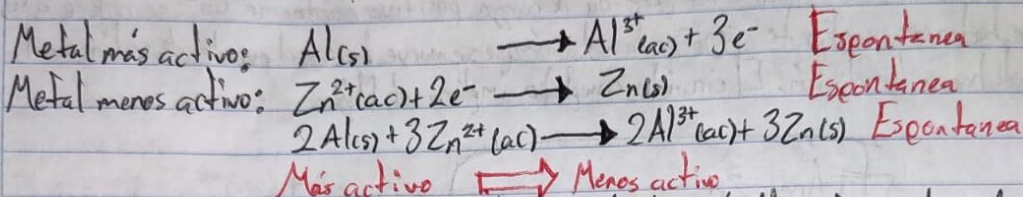 Metal más activo: Al(s) → Al³⁺(ac) + 3e⁻ Espontanea
Metal menos activo: Zn²⁺(ac) + 2e⁻ → Zn(s) Espontanea
2Al(s) + 3Zn²⁺(ac) → 2Al³⁺(ac) + 3Zn(s) Espontanea
Más activo ⇨ Menos activo